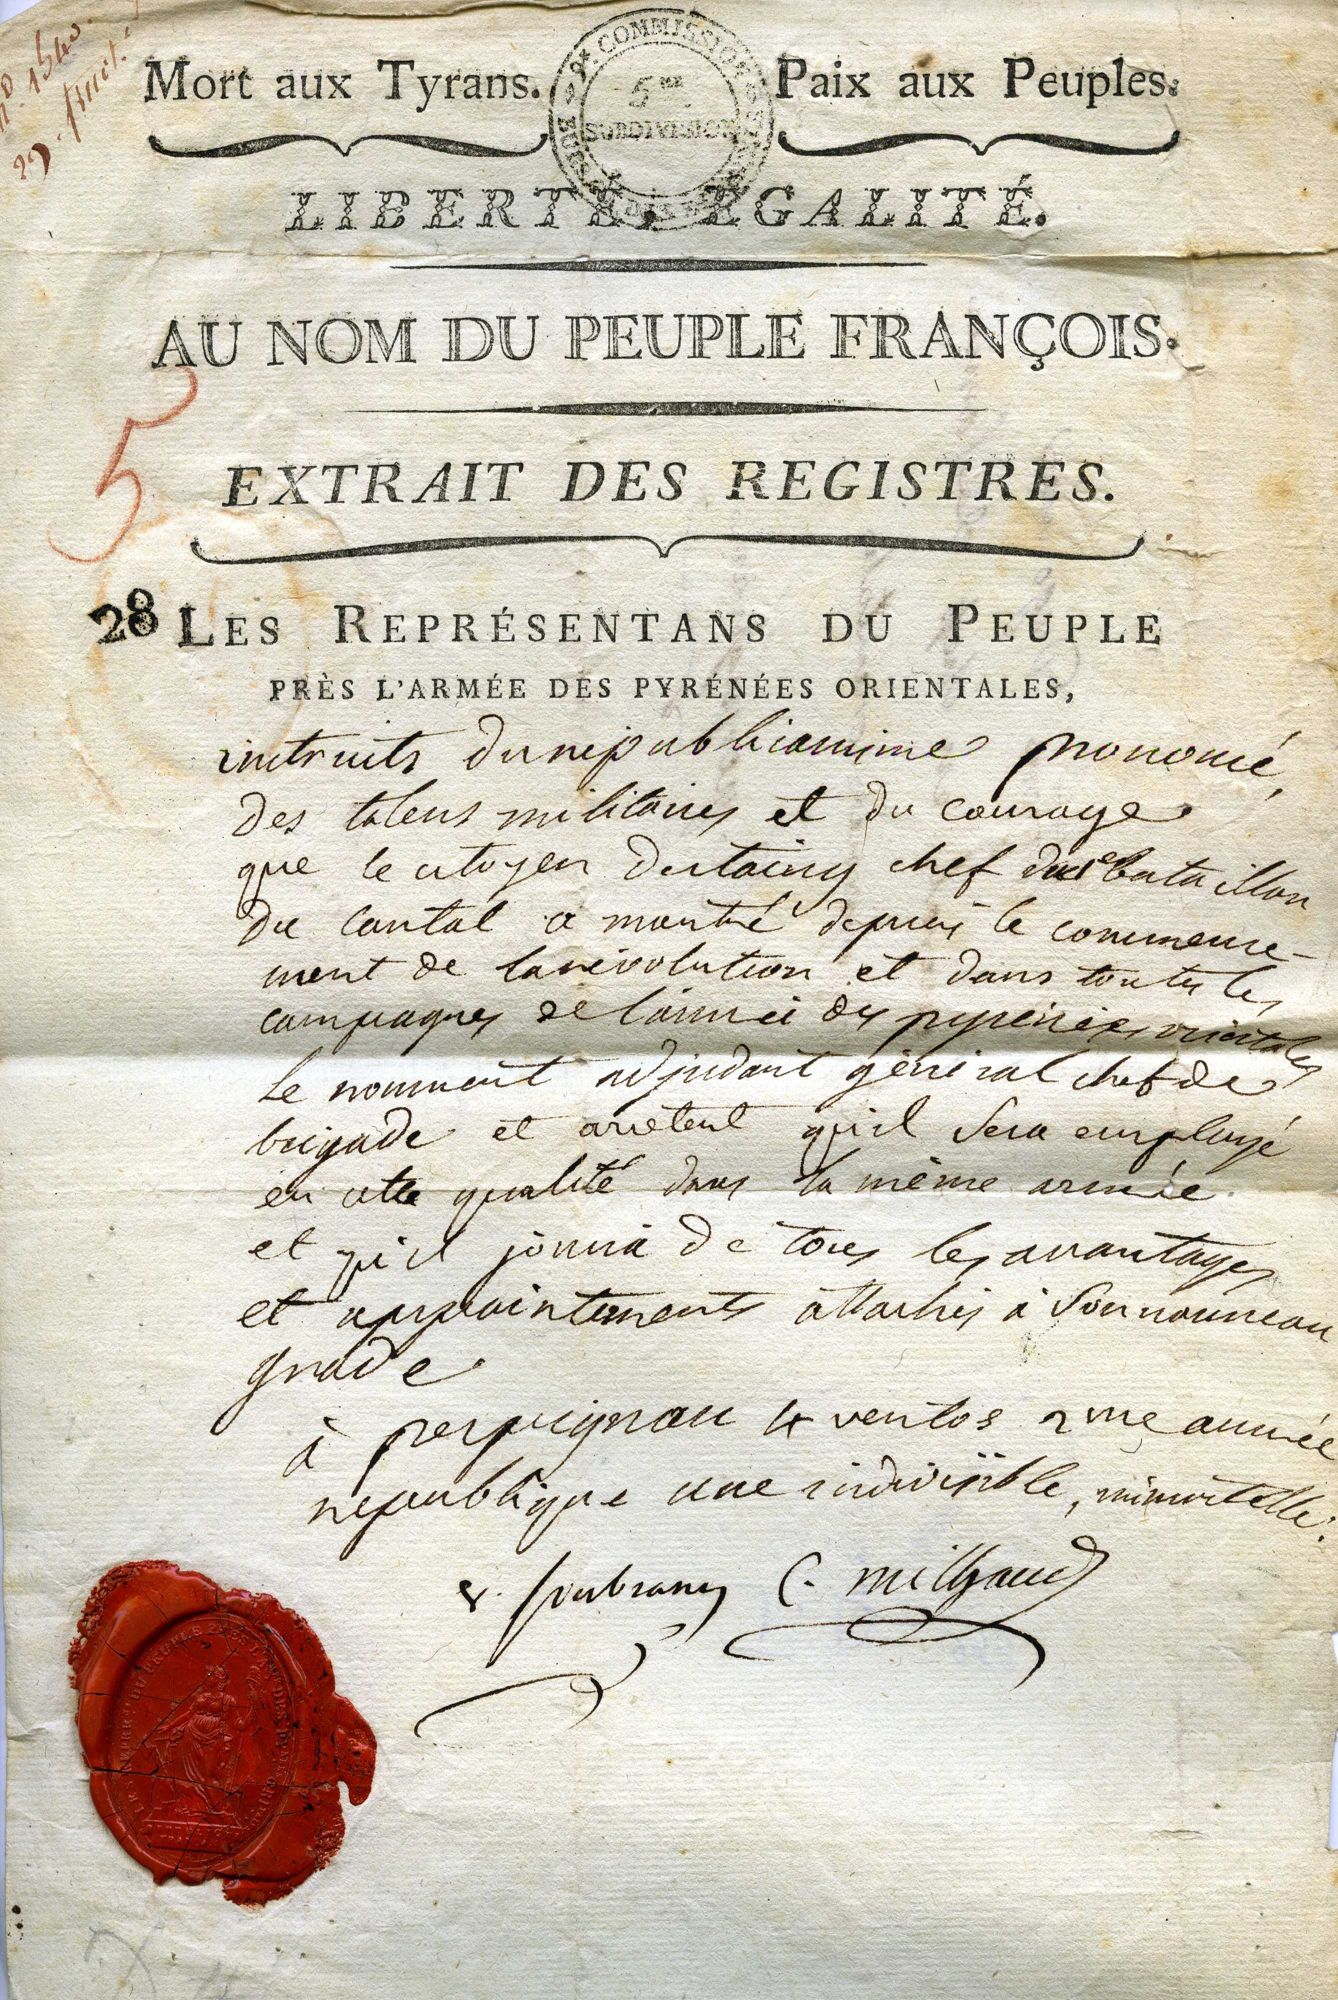 n.o 1540.
29.
Mort aux Tyrans. Paix aux Peuples.
9e. COMMISSION
5me
SUBDIVISION
LIBERTÉ, ÉGALITÉ.
AU NOM DU PEUPLE FRANÇOIS.
5
EXTRAIT DES REGISTRES.
28
LES REPRÉSENTANS DU PEUPLE
PRÈS L'ARMÉE DES PYRÉNÉES ORIENTALES,
instruits du republicanisme prononcé,
des talens militaires et du courage
que le citoyen destaing chef du bataillon
du cantal a montré depuis le commence-
ment de la révolution et dans toutes les
campagnes de l'armée des pyrénées orientales
le nomment adjudant général chef de
brigade et arretent qu'il sera employé
en cette qualité dans la même armée
et qu'il jouira de tous les avantages
et appointements attachés à son nouveau
grade
à perpignan 4 ventos 2me année
republique une indivisible, immortelle.
soubrany C. milhaud
DU PEUPLE